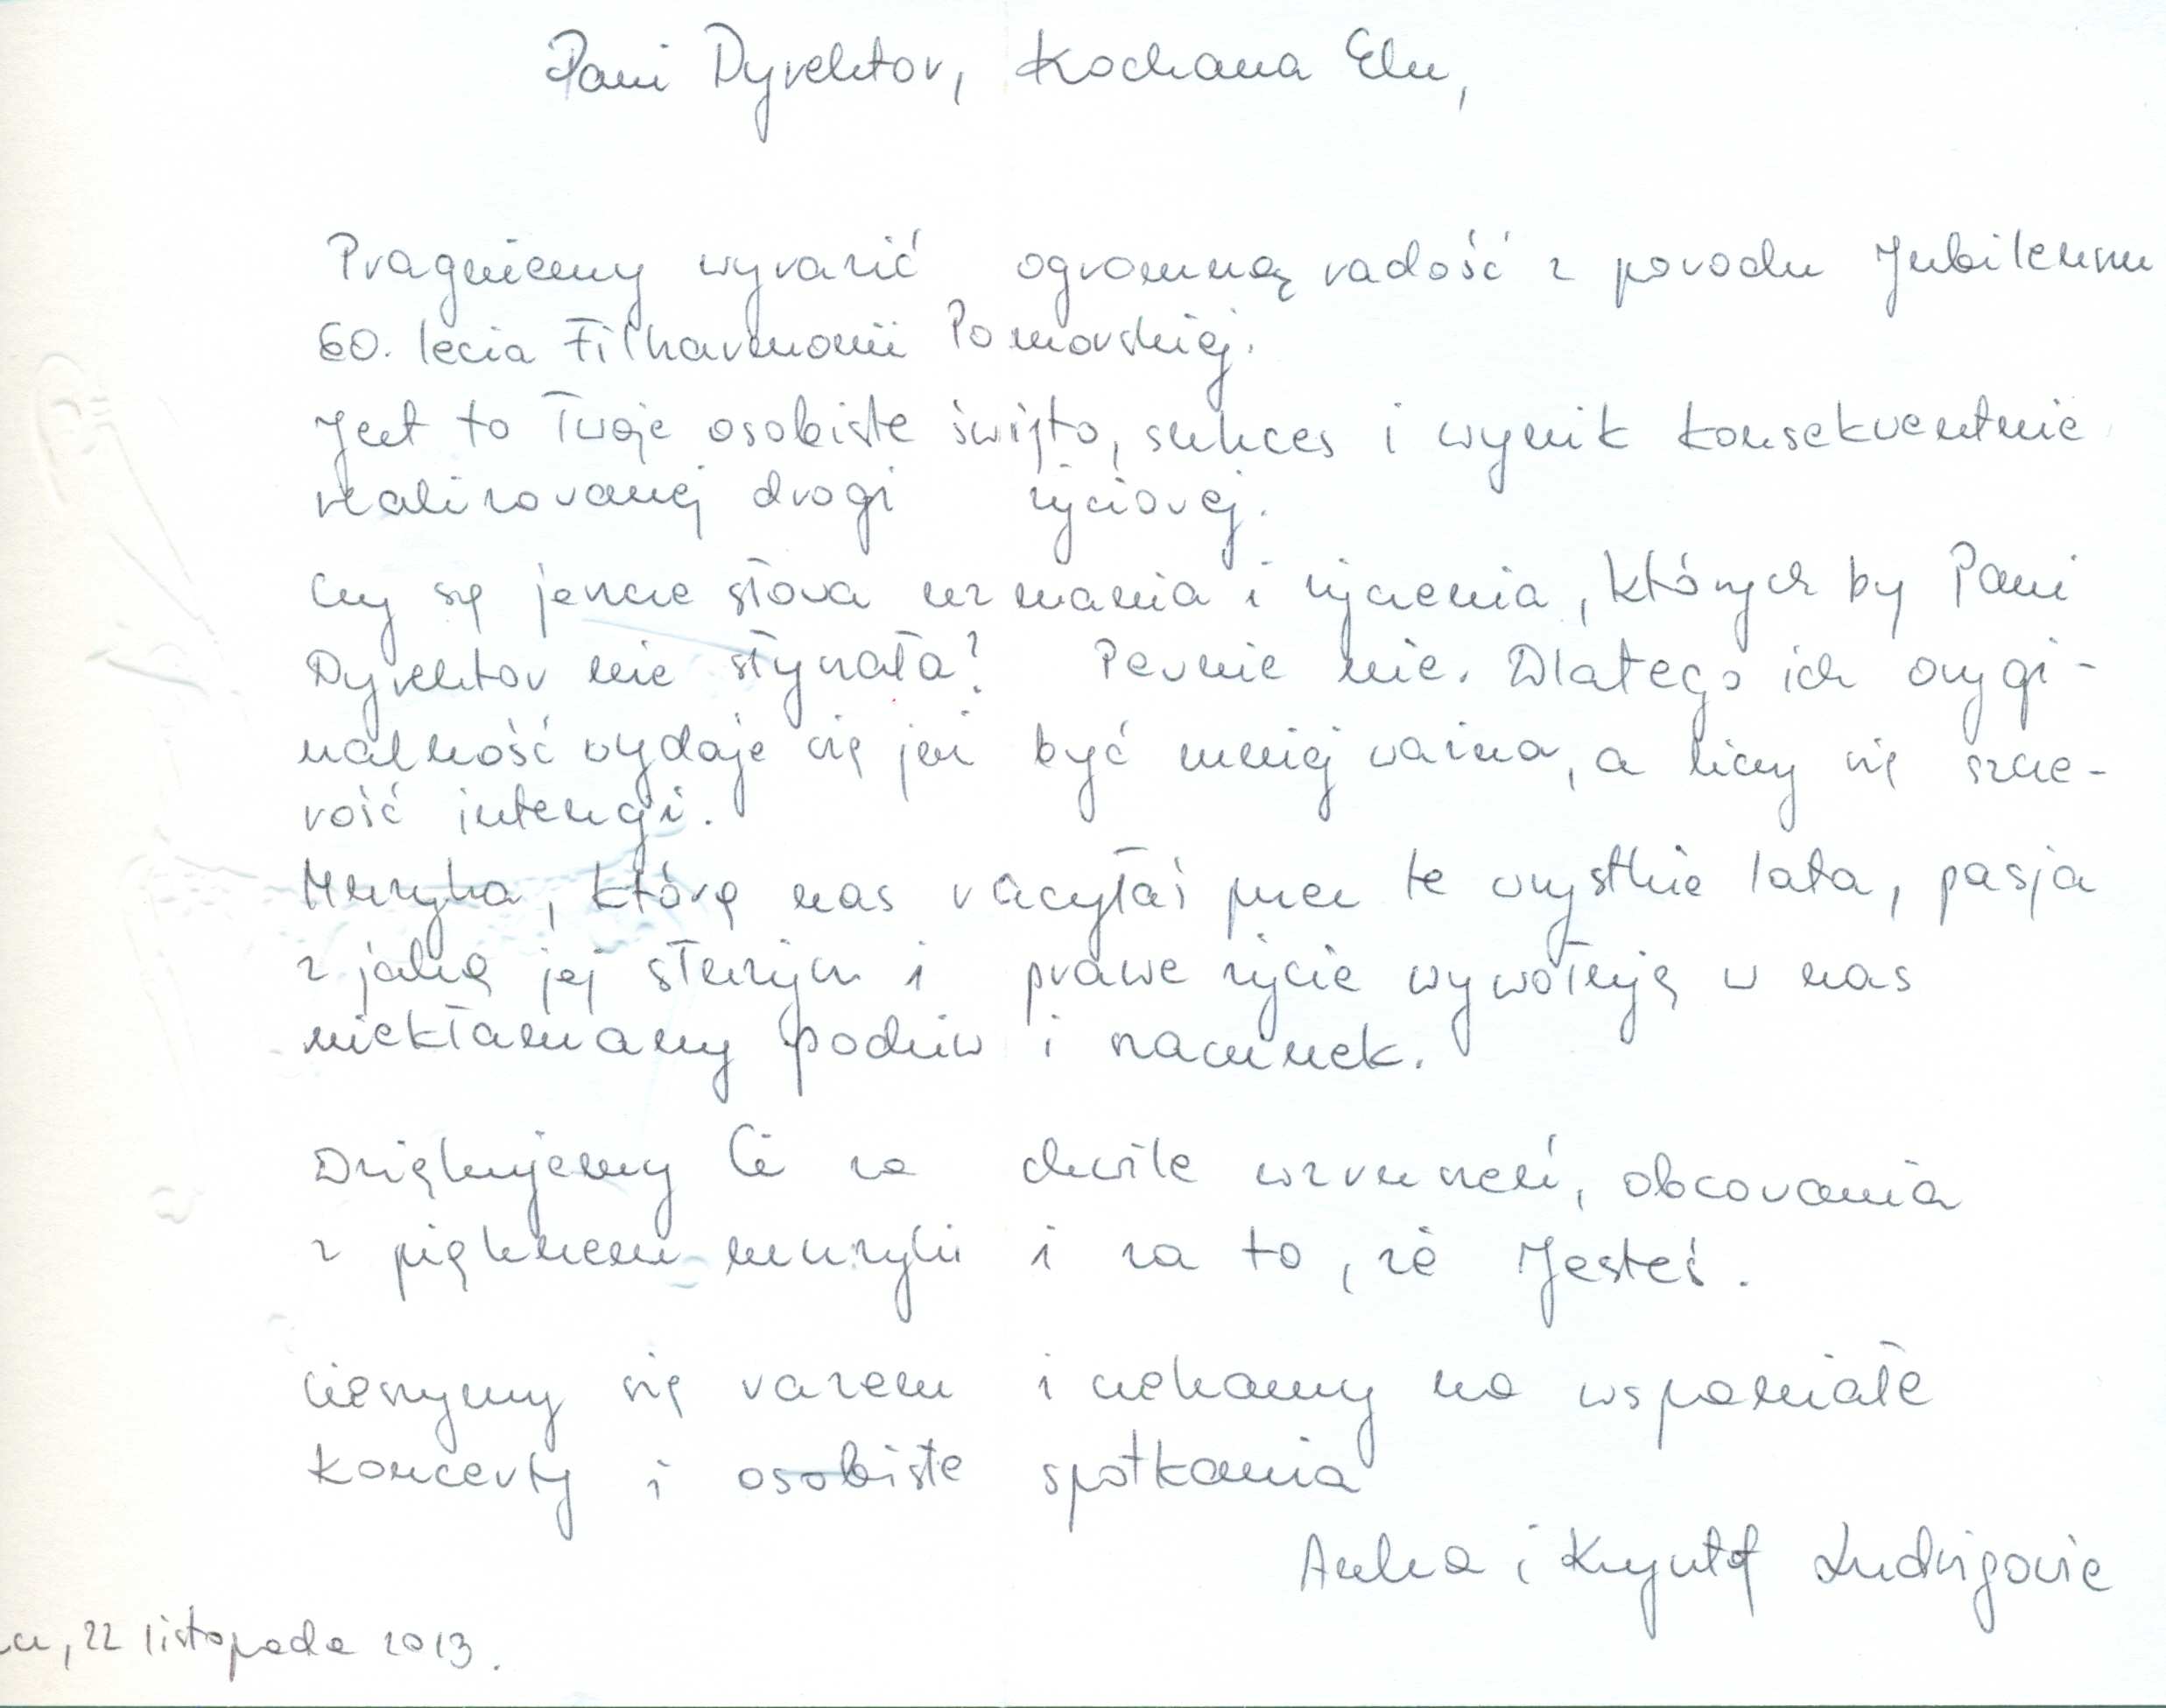 Pani Dyrektor, Kochana Elu,
Pragniemy wyrazić ogromną radość z powodu Jubileuszu
60. lecia Filharmonii Pomorskiej.
Jest to Twoje osobiste święto, sukces i wynik konsekwentnie
realizowanej drogi życiowej.
Czy są jeszcze słowa uznania i życzenia, których by Pani
Dyrektor nie słyszała? Pewnie nie. Dlatego ich orygi-
nalność wydaje się już być mniej ważna, a liczy się szcze-
rość intencji.
Muzyka, którą nas raczyłaś przez te wszystkie lata, pasja
z jaką jej służysz i prawe życie wywołują w nas
niekłamany podziw i szacunek.
Dziękujemy Ci za chwile wzruszeń, obcowania
z pięknem muzyki i za to, że Jesteś.
Cieszymy się razem i czekamy na wspaniałe
koncerty i osobiste spotkania
Anka i Krzysztof Ludwigowie
22 listopada 2013.